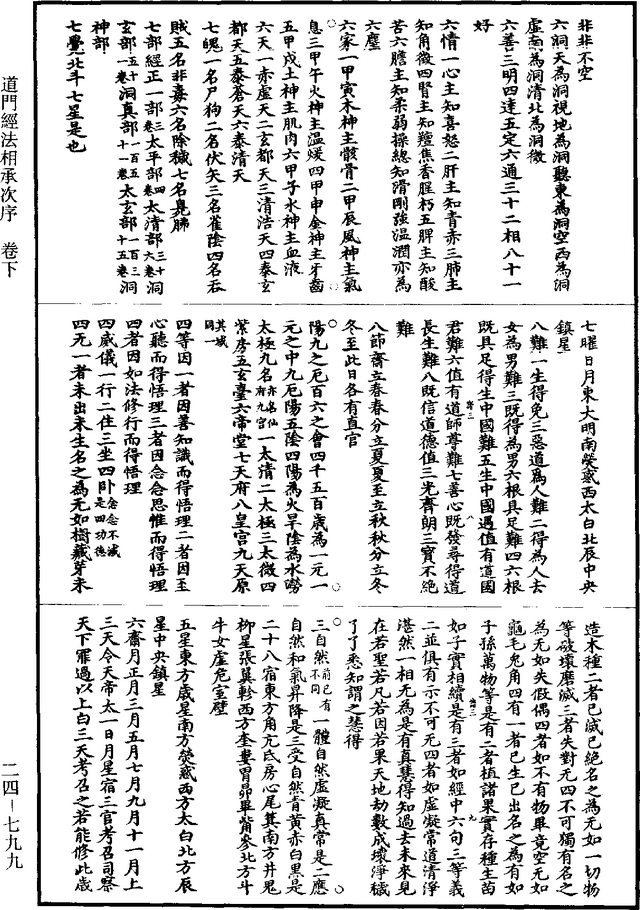 非非不空
六洞天為洞視地為洞聽東為洞空西為洞
虛南為洞清北為洞微
六善三明四達五定六通三十二相八十一
好
六情一心主知喜怒二肝主知青赤三肺主
知角徵四腎主知羶焦香腥朽五脾主知酸
苦六膽主知柔弱操總知滑剛強溫潤亦為
六塵
六家一甲寅木神主骸骨二甲辰風神主氣
息三甲午火神主溫煖四甲申金神主牙齒
五甲戌土神主肌肉六甲子水神主血液
六天一赤虛天二玄都天三清浩天四泰玄
都天五泰蒼天六泰清天
七魄一名尸狗二名伏矢三名雀陰四名吞
賊五名非毒六名除穢七名臭肺
七部經正一部三卷太平部四卷太清部三十六卷洞
玄部五十一卷洞真部一百五十一卷太玄部一百三十五卷洞
神部
七覺北斗七星是也
七曜日月東大明南熒惑西太白北辰中央
鎮星
八難一生得免三惡道為人難二得為人去
女為男難三既得為男六根具足難四六根
既具足得生中國難五生中國遇值有道國
君難六值有道師尊難七善心既發尋得道
長生難八既信道德值三光齊朗三寶不絕
難
八節齋立春春分立夏夏至立秋秋分立冬
冬至此日各有直官
陽九之厄百六之會四千五百歲為一元一
元之中九厄陽五陰四陽為火旱陰為水澇
太極九名亦名仙府九宮一太清二太極三太微四
紫房五玄臺六帝堂七天府八皇宮九天原
其域同一
四等因一者因善知識而得悟理二者因至
心聽而得悟理三者因念念思惟而得悟理
四者因如法修行而得悟理
四威儀一行二住三坐四卧念念不滅是四功德
四无一者未出未生名之為无如樹藏芽未
造木種二者已滅已絕名之為无如一切物
等破壞磨滅三者失對无四不可獨有名之
為无如失假偶四者如不有物畢竟空无如
龜毛兔角四有一者已生已出名之為有如
子孫萬物等是有二者植諸果實存種生苗
如子實相續是有三者如經中六句三等義
二並俱有示不可无四者如虛凝常道清淨
湛然一相无為是有真慧得知過去未來見
在若聖若凡若因若果天地劫數成壞淨穢
了了悉知謂之慧得
三自然前已有不同一體自然虛凝真常是二應
自然和氣昇降是三受自然青黃赤白黑是
二十八宿東方角亢氐房心尾箕南方井鬼
柳星張翼軫西方奎婁胃昴畢觜參北方斗
牛女虛危室壁
五星東方歲星南方熒惑西方太白北方辰
星中央鎮星
六齋月正月三月五月七月九月十一月上
三天令天帝太一日月星宿三官考召司察
天下罪過以上白三天考召之若能修此歲
道門經法相承次序 卷下
二四－七九九